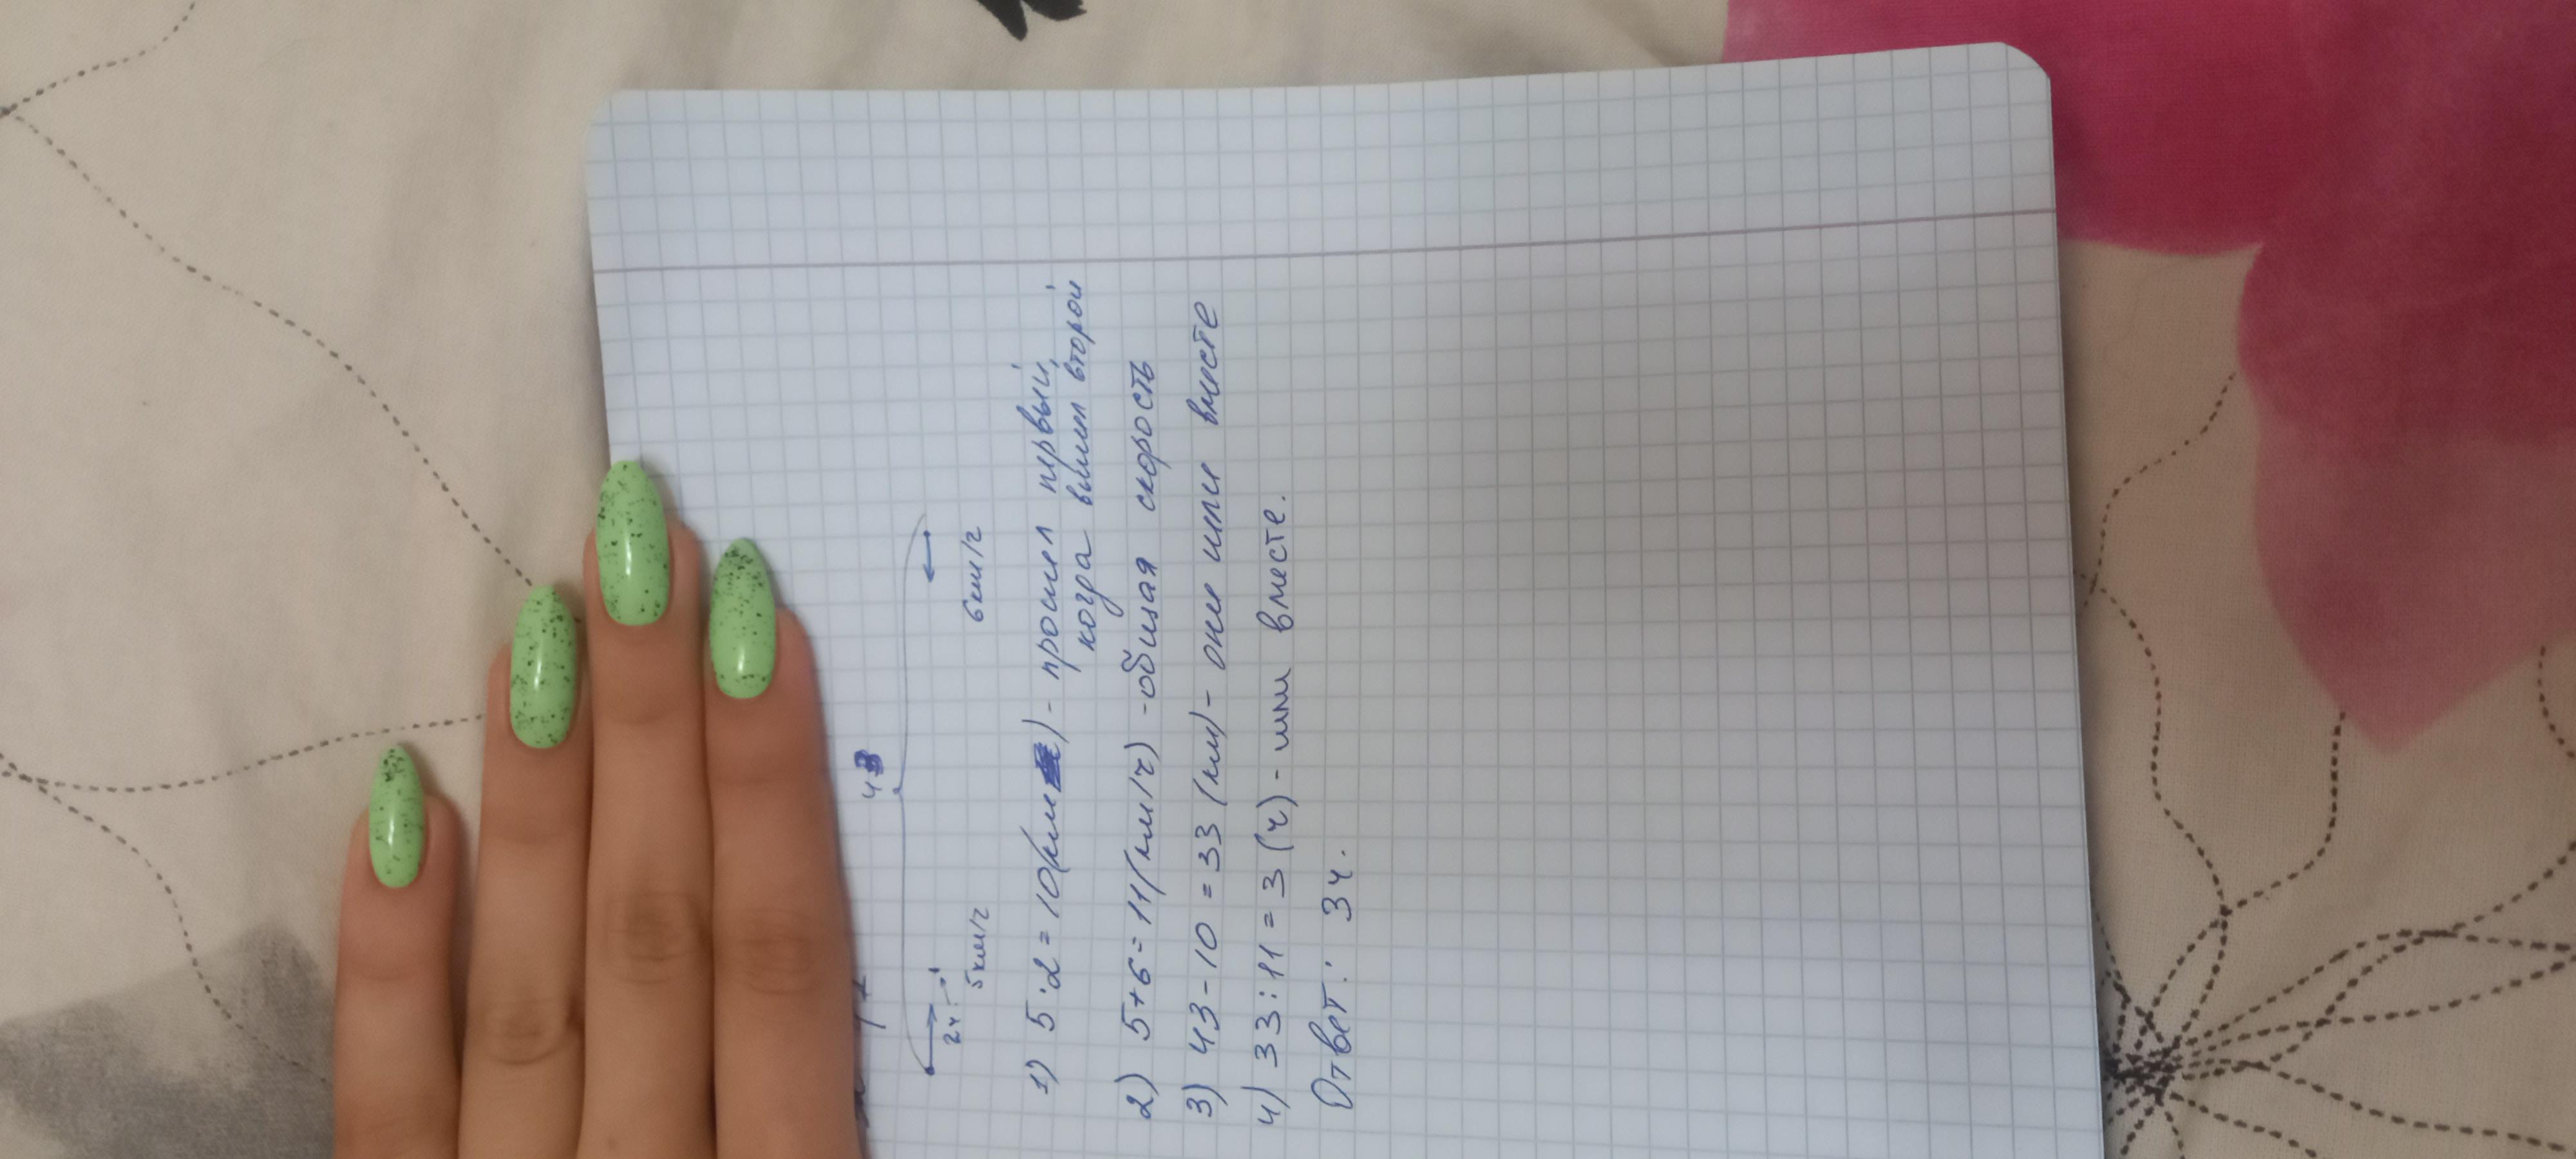 43
2ч
5км/ч 6км/ч
1) 5·2=10(км) - прошел первый,
когда вышел второй
2) 5+6=11(км/ч) - общая скорость
3) 43-10=33 (км) - они шли вместе
4) 33:11=3 (ч) - шли вместе.
Ответ: 3ч.